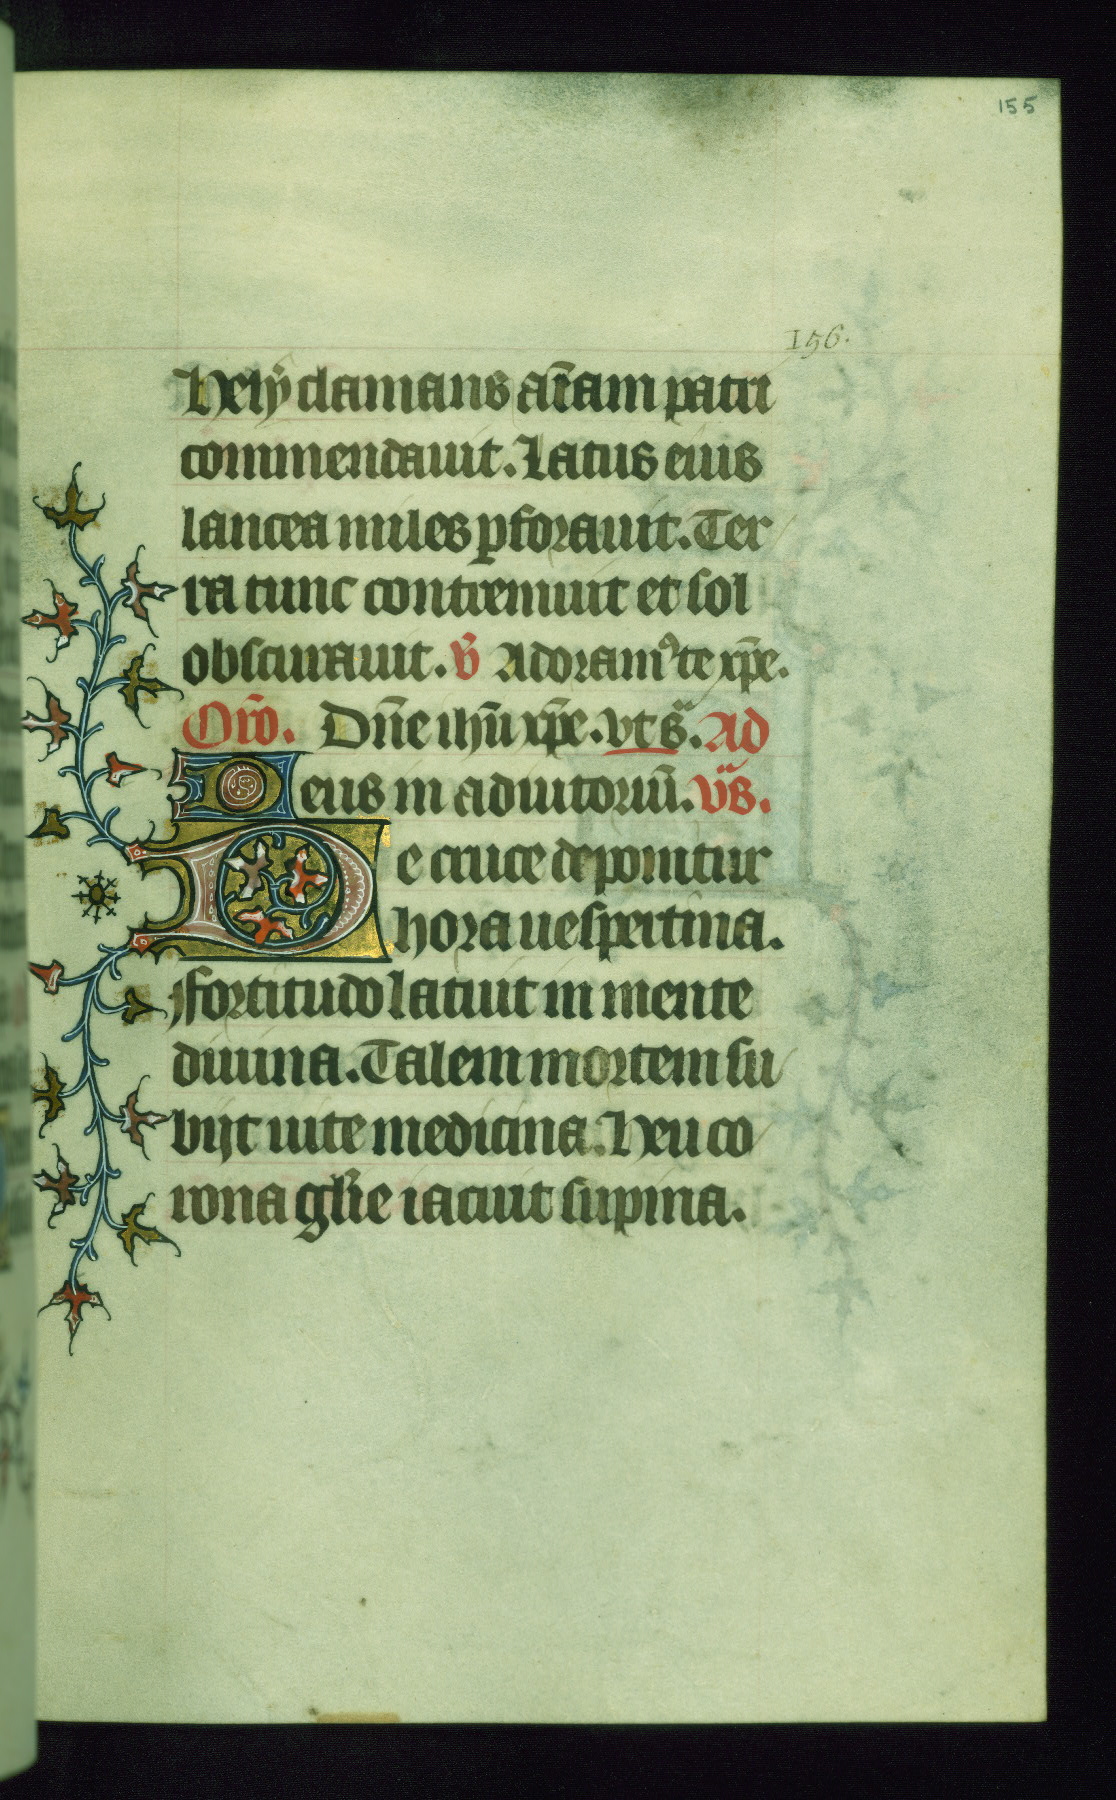 155
156.
Hely clamans aīam patri
commendauit. Latus eius
lancea miles ꝑforauit. Ter
ra tunc contremuit et sol
obscurauit. v̄ Adoramꝰ te xp̄e.
Or̄o. Dn̄e ihū xp̄e. vt s̄. Ad
Deus in adiutoriū. v̄s̄.
De cruce deponitur
hora uespertina.
fortitudo latuit in mente
diuina. Talem mortem su
bijt uite medicina. Heu co
rona gl̄ie iacuit supina.